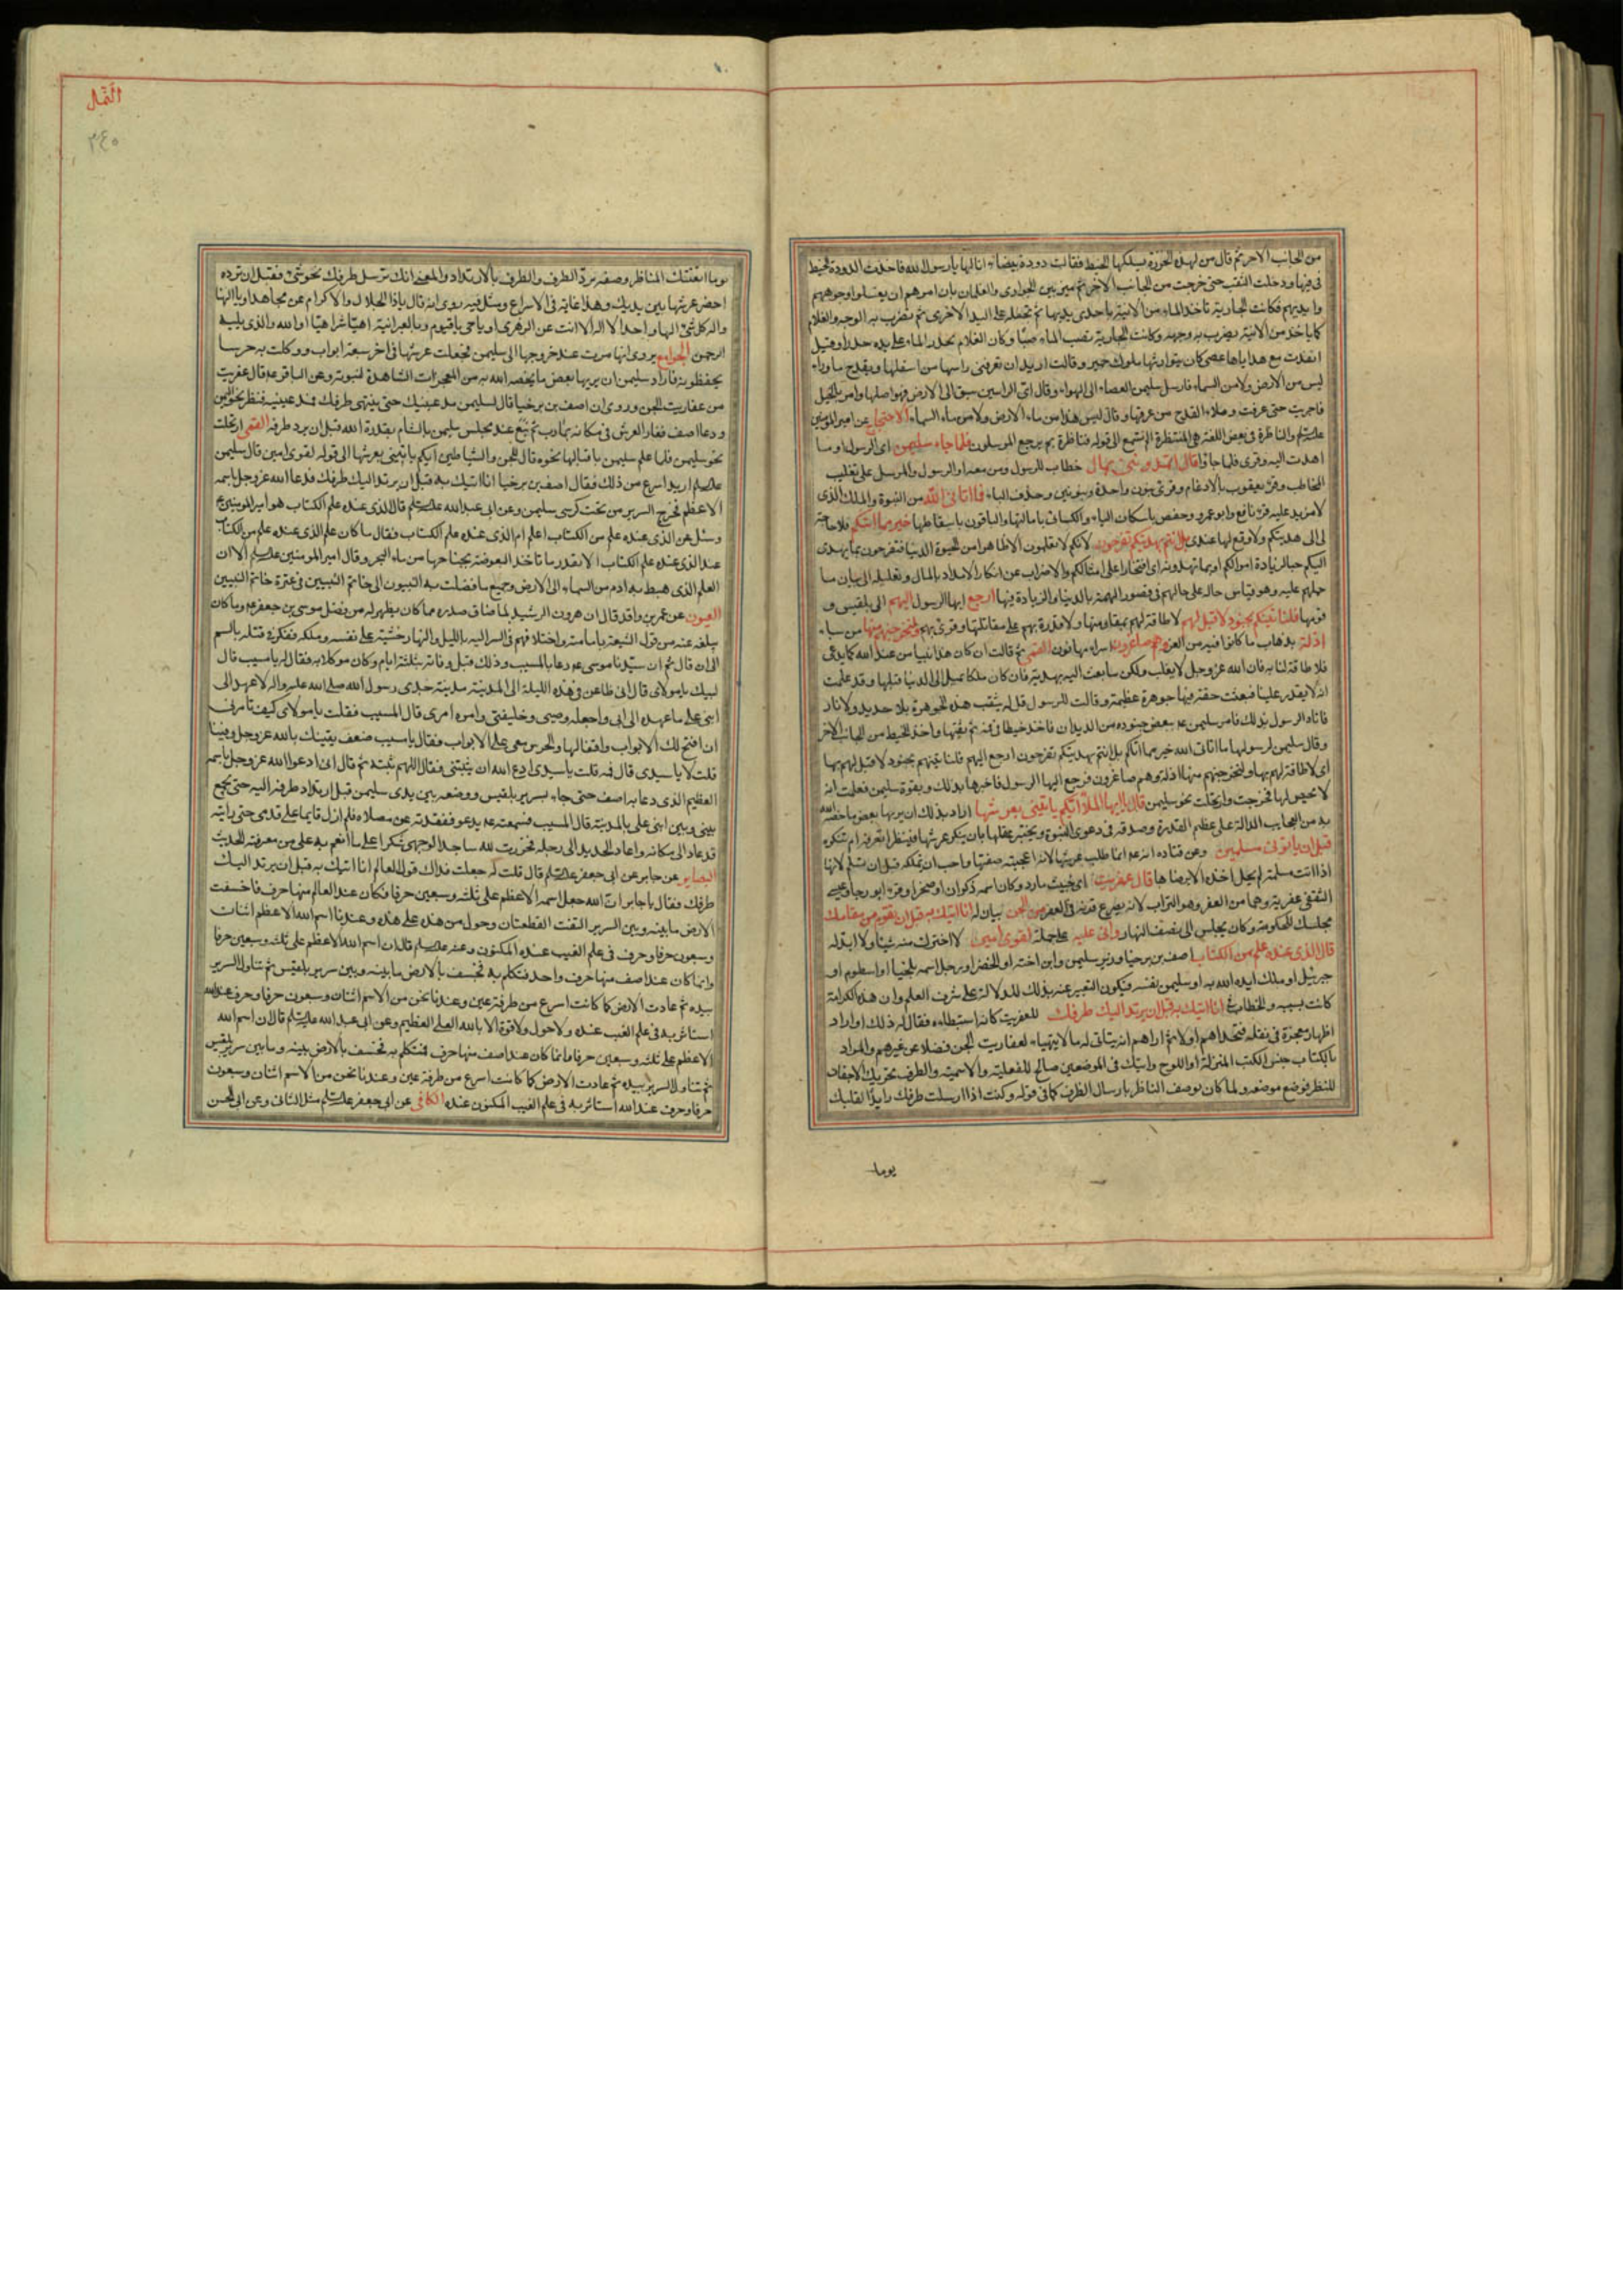 من الجانب الآخر ثم قال من لهذه الخرزة يسلكها الخيط فقالت دودة بيضاء انا لها يا رسول الله فاخذت الدودة الخيط
فى فيها ودخلت الثقب حتى خرجت من الجانب الآخر ثم ميز بين الجوارى والغلمان بان امرهم ان يغسلوا وجوههم
وايديهم فكانت الجارية تأخذ الماء من الآنية باحدى يديها ثم تجعله على اليد الاخرى ثم تضرب به الوجه والغلام
كما يأخذ من الآنية يضرب به وجهه وكانت الجارية تصب الماء صبا وكان الغلام يحدر الماء على يده حدرا وقيل
انفذت مع هداياها عصى كان يتوارثها ملوك حمير وقالت اريد ان تعرفنى راسها من اسفلها وبقدح ماء وراء
ليس من الارض ولا من السماء فارسل سليمن العصاء الى الهواء وقال اى الراسين سبق الى الارض فهو اصلها وامر بالخيل
فاجريت حتى عرقت وملاء القدح من عرقها وقال ليس هذا من ماء الارض ولا من ماء السماء الاحتجاج عن امير المؤمنين
والناظرة فى بعض اللغة هى المنتظرة الم تسمع الى قوله فناظرة بم يرجع المرسلون فلما جاء سليمن اى الرسول او ما
اهدت اليه وقرى فلما جاؤا قال اتمدونن بمال خطاب للرسول ومن معه او الرسول والمرسل على تغليب
المخاطب وقرء يعقوب بالادغام وقرى بنون واحدة وبنونين وحذف الياء فما اتانى الله من النبوة والملك الذى
لا مزيد عليه قرء نافع وابو عمرو وحفص باسكان الياء والكسائى بامالتها والباقون باسقاطها خير مما اتيكم فلا حاجة
لى الى هديتكم ولا وقع لها عندى بل انتم بهديتكم تفرحون لانكم لا تعلمون الا ظاهرا من الحيوة الدنيا فتفرحون بما يهدى
اليكم حبا لزيادة اموالكم او بما تهدونه افتخارا على امثالكم والاضراب عن انكار الامداد بالمال وتعليله الى بيان ما
حملهم عليه وهو قياس حاله على حالهم فى قصور الهمة بالدنيا والزيادة فيها ارجع ايها الرسول اليهم الى بلقيس و
قومها فلنأتينهم بجنود لا قبل لهم لا طاقة لهم بمقاومتها ولا قدرة بهم على مقاتلتها وقرى بهم ولنخرجنهم منها من سباء
اذلة بذهاب ما كانوا فيه من العز وهم صاغرون اسراء مهانون القمى ثم قالت ان كان هذا نبيا من عند الله كما يدعى
فلا طاقة لنا به فان الله عز وجل لا يغلب ولكن سابعث اليه بهدية فان كان ملكا يميل الى الدنيا قبلها وقد علمت
انه لا يقدر علينا فبعثت حقة فيها جوهرة عظيمة وقالت للرسول قل له يثقب هذه الجوهرة بلا حديد ولا نار
فاتاه الرسول بذلك فامر سليمن ع بعض جنوده من الديدان فاخذ خيطا فى فمه ثم ثقبها واخذ الخيط من الجانب الآخر
وقال سليمن لرسولها ما اتانى الله خير مما اتاكم بل انتم بهديتكم تفرحون ارجع اليهم فلنأتينهم بجنود لا قبل لهم بها
اى لا طاقة لهم بها ولنخرجنهم منها اذلة وهم صاغرون فرجع اليها الرسول فاخبرها بذلك وبقوة سليمن فعلمت انه
لا محيص لها فخرجت وارتحلت نحو سليمن قال يا ايها الملؤا ايكم يأتينى بعرشها اراد بذلك ان يريها بعض ما خصه الله
به من العجايب الدالة على عظيم القدرة وصدقه فى دعوى النبوة ويختبر عقلها بان ينكر عرشها فينظر اتعرفه ام تنكره
قبل ان يأتونى مسلمين وعن قتاده انه ع انما طلب عرشها لانه اعجبته صفتها واحب ان يملكه قبل ان تسلم لانها
اذا اتت مسلمة لم يحل اخذه الا برضاها قال عفريت اى خبيث مارد وكان اسمه ذكوان او صخرا وقرء ابو رجا وعيسى
الثقفى عفرية وهما من العفر وهو التراب لانه يصرع قرنه فى العفر من الجن بيان له انا اتيك به قبل ان تقوم من مقامك
مجلسك للحكومة وكان يجلس الى نصف النهار وانى عليه على حمله لقوى امين لا اختزل منه شيئا ولا ابدله
قال الذى عنده علم من الكتاب اصف بن برخيا وزير سليمن وابن اخته او الخضر او رجل اسمه بلخيا او اسطوم او
جبرئيل او ملك ايده الله به او سليمن نفسه فيكون التعبير عنه بذلك للدلالة على شرف العلم وان هذه الكرامة
كانت بسببه والخطاب فى انا اتيك به قبل ان يرتد اليك طرفك للعفريت كانه استبطاءه فقال له ذلك او اراد
اظهار معجزة فى نقله فتحداهم اولا ثم اراهم انه يتاتى له ما لا يتهياء لعفاريت الجن فضلا عن غيرهم والمراد
بالكتاب جنس الكتب المنزلة او اللوح واتيك فى الموضعين صالح للفعلية والاسمية والطرف تحريك الاجفان
للنظر فوضع موضعه ولما كان يوصف الناظر بارسال الطرف كما فى قوله وكنت اذا ارسلت طرفك رايدا لقلبك
يوما
النمل
٢٤٠
يوما اتعبتك المناظر وصفه برد الطرف والطرف بالارتداد والمعنى انك ترسل طرفك نحو شئ فقبل ان ترده
احضر عرشها بين يديك وهذا غاية فى الاسراع ومثل فيه روى انه قال يا ذا الجلال والاكرام عن مجاهد او يا الهنا
واله كل شئ الها واحدا لا اله الا انت عن الزهرى او يا حى يا قيوم وبالعبرانية اهيا شراهيا او الله والذى يليه
الرحمن الجوامع يروى انها امرت عند خروجها الى سليمن فجعلت عرشها فى اخر سبعة ابواب ووكلت به حرسا
يحفظونه فاراد سليمن ان يريها بعض ما يخصه الله به من المعجزات الشاهدة لنبوته وعن الباقر ع قال عفريت
من عفاريت الجن وروى ان اصف بن برخيا قال لسليمن مد عينيك حتى ينتهى طرفك فمد عينيه فنظر نحو اليمن
ودعا اصف فغار العرش فى مكانه بمارب ثم نبع عند مجلس سليمن بالشام بقدرة الله قبل ان يرد طرفه القمى ارتحلت
نحو سليمن فلما علم سليمن باقبالها نحوه قال للجن والشياطين ايكم يأتينى بعرشها الى قوله لقوى امين قال سليمن
اريد اسرع من ذلك فقال اصف بن برخيا انا اتيك به قبل ان يرتد اليك طرفك فدعا الله عز وجل باسمه
الاعظم فخرج السرير من تحت كرسى سليمن وعن ابى عبد الله قال الذى عنده علم الكتاب هو امير المؤمنين ع
وسئل عن الذى عنده علم من الكتاب اعلم ام الذى عنده علم الكتاب فقال ما كان علم الذى عنده علم من الكتاب
عند الذى عنده علم الكتاب الا بقدر ما تاخذ البعوضة بجناحها من ماء البحر وقال امير المؤمنين الا ان
العلم الذى هبط به ادم من السماء الى الارض وجميع ما فضلت به النبيون الى خاتم النبيين فى عترة خاتم النبيين
العيون عن عمر بن واقد قال ان هرون الرشيد لما ضاق صدره مما كان يظهر له من فضل موسى بن جعفر ع وما كان
يبلغه عنه من قول الشيعة بامامته واختلافهم فى السر اليه بالليل والنهار خشية على نفسه وملكه ففكر فى قتله بالسم
الى ان قال ثم ان سيدنا موسى ع دعا بالمسيب وذلك قبل وفاته بثلثة ايام وكان موكلا به فقال له يا مسيب قال
لبيك يا مولاى قال انى ظاعن فى هذه الليلة الى المدينة مدينة جدى رسول الله صلى الله عليه واله لاعهد الى
ابنى على ما عهده الى ابى واجعله وصيى وخليفتى وامره امرى قال المسيب فقلت يا مولاى كيف تامرنى
ان افتح لك الابواب واقفالها والحرس معى على الابواب فقال يا مسيب ضعف يقينك بالله عز وجل وفينا
قلت لا يا سيدى قال فمه قلت يا سيدى ادع الله ان يثبتنى فقال اللهم ثبته ثم قال انى ادعوا الله عز وجل باسمه
العظيم الذى دعا به اصف حتى جاء بسرير بلقيس ووضعه بين يدى سليمن قبل ارتداد طرفه اليه حتى يجمع
بينى وبين ابنى على بالمدينة قال المسيب فسمعته ع يدعو ففقدته عن مصلاه فلم ازل قايما على قدمى حتى رايته
قد عاد الى مكانه واعاد الحديد الى رجله فخررت لله ساجدا لوجهى شكرا على ما انعم به على من معرفته الحديث
البصاير عن جابر عن ابى جعفر قال قلت له جعلت فداك قول العالم انا اتيك به قبل ان يرتد اليك
طرفك فقال يا جابر ان الله جعل اسمه الاعظم على ثلثة وسبعين حرفا فكان عند العالم منها حرف فاخسفت
الارض ما بينه وبين السرير التفت القطعتان وحول من هذه على هذه وعندنا اسم الله الاعظم اثنان
وسبعون حرفا وحرف فى علم الغيب عنده المكنون وعنه قال ان اسم الله الاعظم على ثلثة وسبعين حرفا
وانما كان عند اصف منها حرف واحد فتكلم به فخسف بالارض ما بينه وبين سرير بلقيس ثم تناول السرير
بيده ثم عادت الارض كما كانت اسرع من طرفة عين وعندنا نحن من الاسم اثنان وسبعون حرفا وحرف عند الله
استاثر به فى علم الغيب عنده ولا حول ولا قوة الا بالله العلى العظيم وعن ابى عبد الله قال ان اسم الله
الاعظم على ثلثة وسبعين حرفا فانما كان عند اصف منها حرف فتكلم به فخسف بالارض بينه وما بين سرير بلقيس
ثم تناول السرير بيده ثم عادت الارض كما كانت اسرع من طرفة عين وعندنا نحن من الاسم اثنان وسبعون
حرفا وحرف عند الله استاثر به فى علم الغيب المكنون عنده الكافى عن ابى جعفر مثل الثانى وعن ابى الحسن